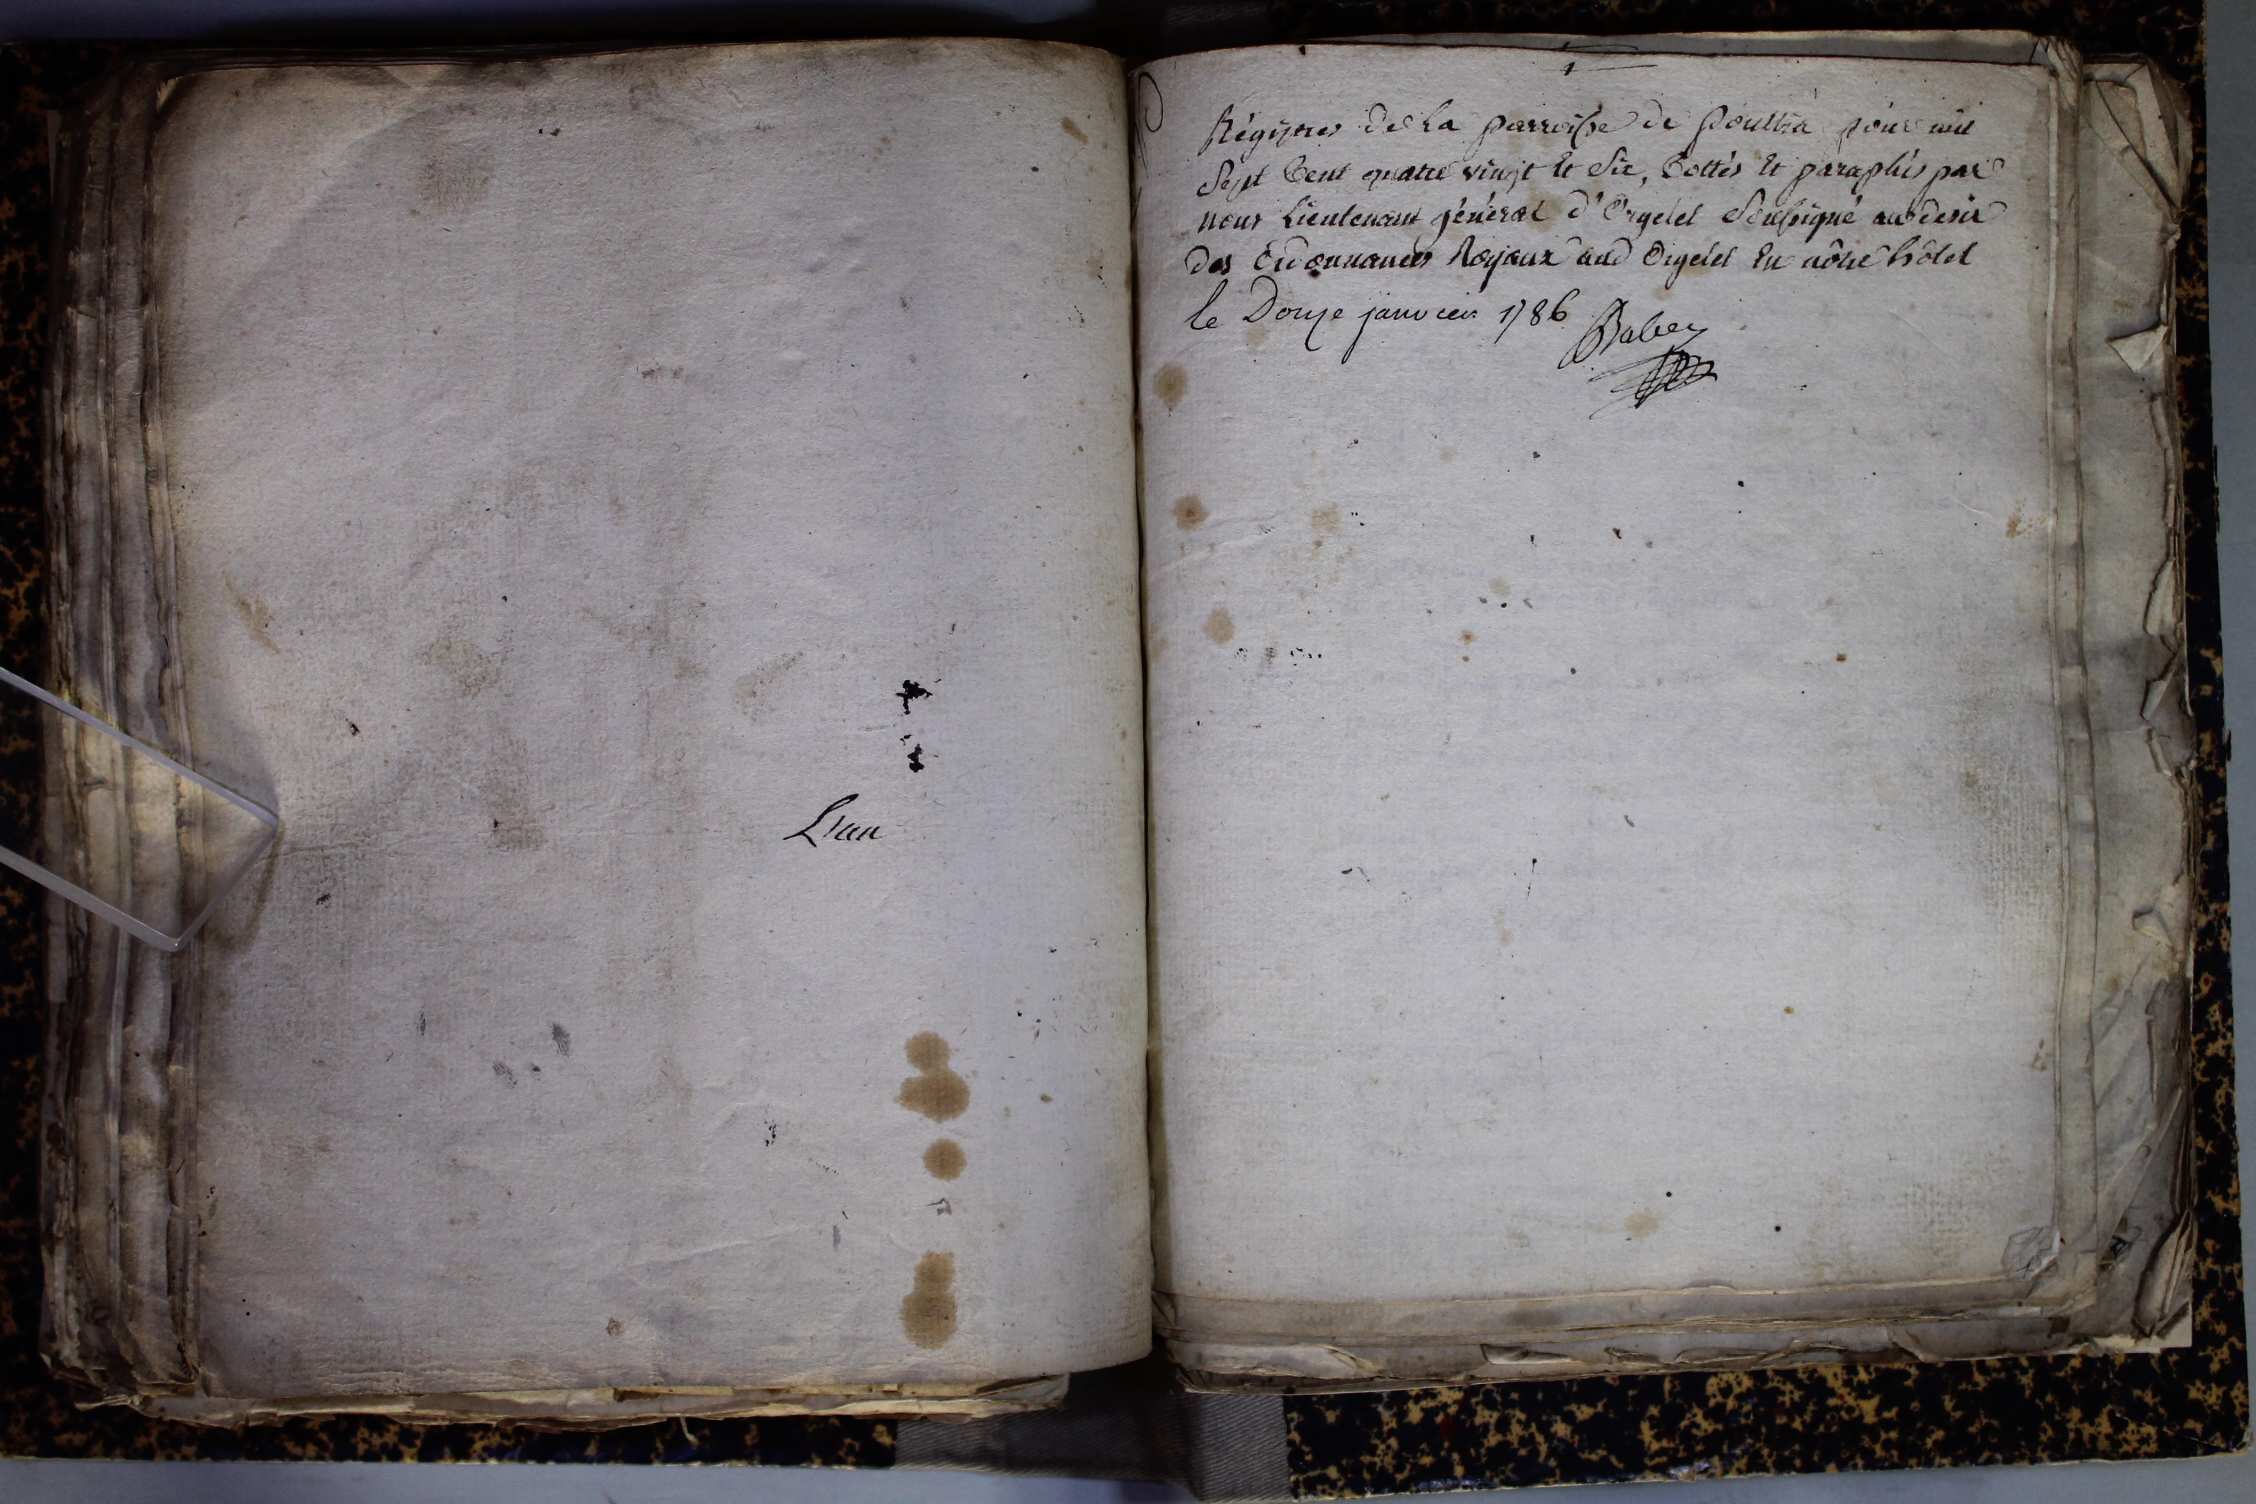 Lan
Régistres de la parroisse de poultia pour mil
Sept Cent quatre vingt et Six, Cottés et paraphés par
nous Lieutenant général d'Orgelet Soussigné au desir
des Ordonnances Royaux aud Orgelet En nôtre hôtel
le Douze janvier 1786 Babey